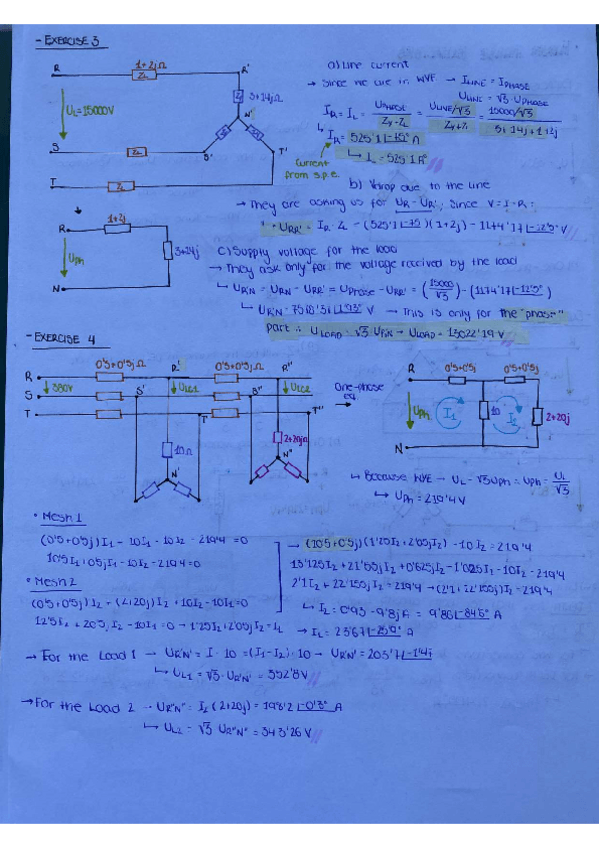 - EXERCISE 3
R
1+2jΩ
R'
ZL
3+14jΩ
UL=15000V
N'
S
ZL
S'
T'
T
ZL
a) Line current
→ Since we are in WYE → ILINE = IPHASE
ULINE = √3 · UPHASE
IR = IL = UPHASE = ULINE/√3 = 15000/√3
IR = 525'1 |-75° A
↳ IL = 525'1 A
Current from s.p.e.
b) Vdrop due to the line
→ They are asking us for UR - UR'; since V = I · R :
URR' = IR · ZL = (525'1 |-75)(1+2j) = 1174'17 |-12'5° V
R
1+2j
Uph
N
c) Supply voltage for the load
→ They ask only for the voltage received by the load
↳ UR'N = URN - URR' = UPHASE - URR' = (15000/√3) - (1174'17 |-12'5°)
→ This is only for the "phase"
part ∴ ULOAD = √3 · UR'N → ULOAD = 13022'19 V
- EXERCISE 4
R
0'5+0'5jΩ
R'
0'5+0'5jΩ
R''
S
380V
S'
UL1
UL2
T
T'
T''
10Ω
2+20jΩ
N'
N''
One-phase eq.
R
0'5+0'5j
0'5+0'5j
Uph
I1
10
I2
2+20j
N
↳ Because WYE → UL = √3 Uph ∴ Uph = UL/√3
↳ Uph = 219'4 V
• Mesh 1
(0'5+0'5j) I1 + 10I1 - 10I2 - 219'4 = 0
10'5I1 + 0'5jI1 - 10I2 - 219'4 = 0
• Mesh 2
(0'5+0'5j) I2 + (2+20j) I2 + 10I2 - 10I1 = 0
12'5I2 + 20'5jI2 - 10I1 = 0 → 1'25I2 + 2'05jI2 = I1
→ (10'5+0'5j)(1'25I2 + 2'05jI2) - 10I2 = 219'4
13'125I2 + 21'55jI2 + 0'625jI2 - 1'025I2 - 10I2 = 219'4
2'1I2 + 22'150jI2 = 219'4
↳ I2 = 0'93 - 9'8j A = 9'86 |-84'5° A
→ For the Load 1 → UR'N' = I · 10 = (I1-I2) · 10 → UR'N' = 203'7 |-1'4j
↳ UL1 = √3 · UR'N' = 352'8 V
→ For the Load 2 → UR''N'' = I2 (2+20j) = 198'2 |-0'3° A
↳ UL2 = √3 UR''N'' = 343'26 V